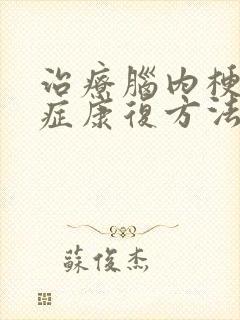 治療腦內梗
症康復方法
蘇俊杰